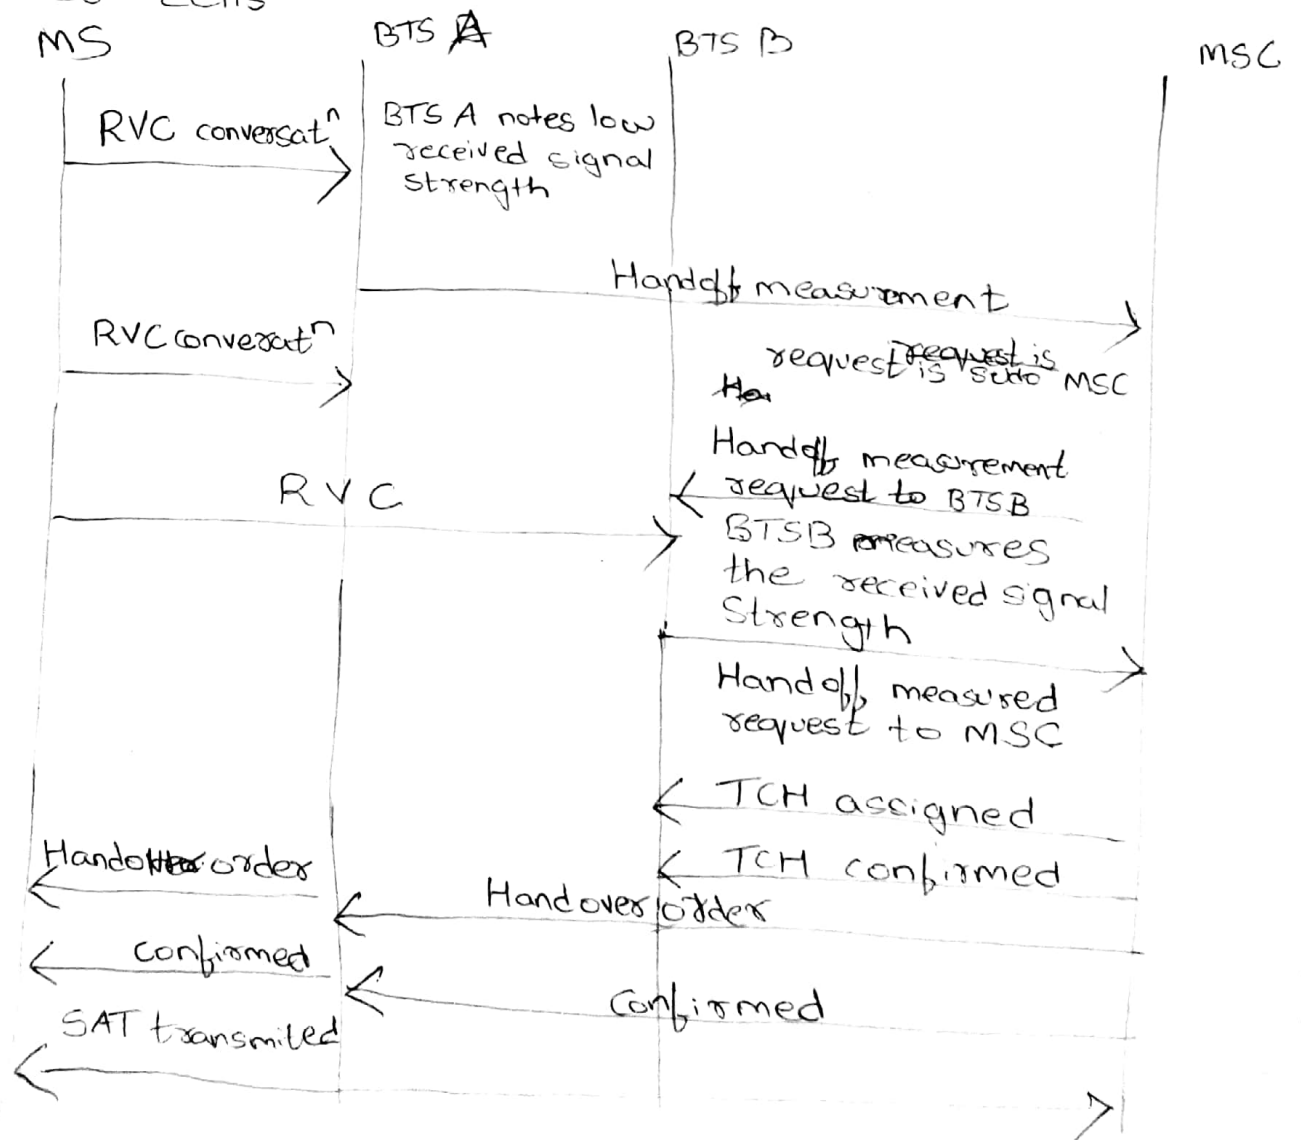 MS
BTS A
BTS B
MSC
RVC conversatⁿ
BTS A notes low
received signal
strength
Handoff measurement
RVC converatⁿ
request is
request is MSC
Handoff measurement
request to BTSB
RVC
BTSB measures
the received signal
Strength
Handoff measured
request to MSC
TCH assigned
TCH confirmed
order
Handover order
confirmed
Confirmed
SAT transmited